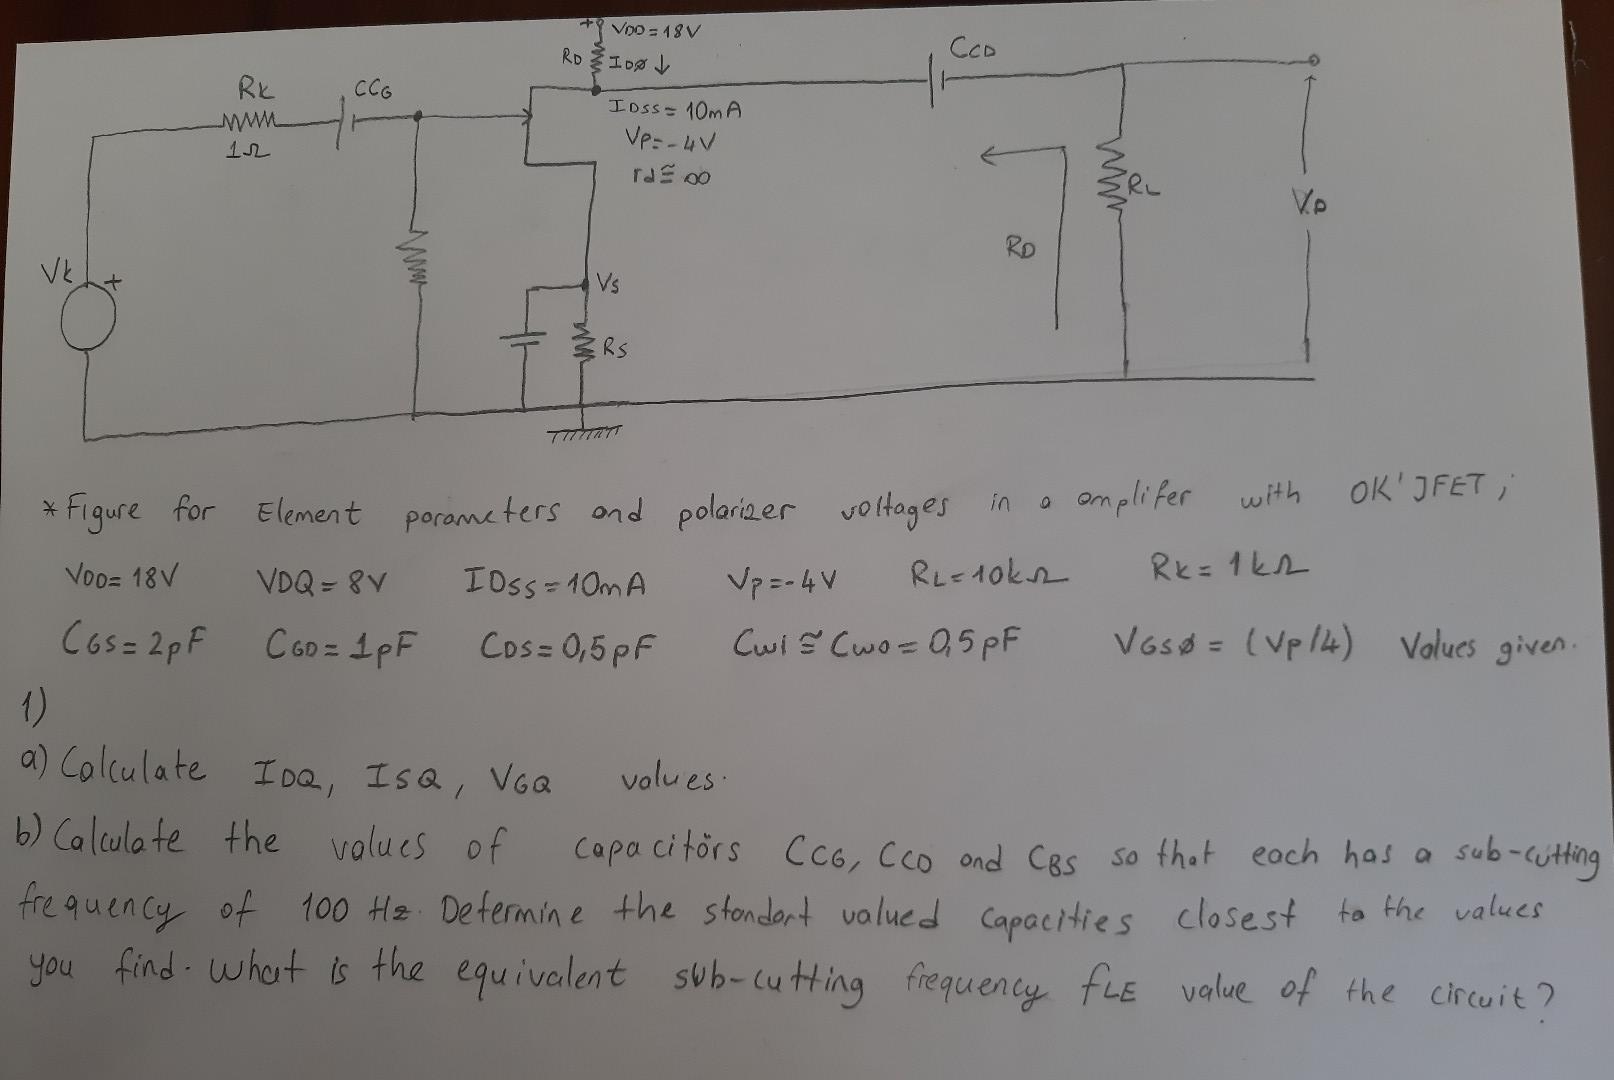 + VDD=18V
RD IDØ ↓
CCD
RK
CCG
1Ω
IDSS= 10mA
VP=-4V
rd≅∞
RL
RD
VO
VK +
VS
RS
* Figure for Element parameters and polarizer voltages in a amplifer with OK'JFET;
VDD= 18V VDQ = 8V IDSS=10mA VP=-4V RL=10kΩ RK= 1kΩ
CGS= 2pF CGD= 1pF CDS= 0,5pF CWİ ≅ CWO = 0,5pF VGSØ = (VP/4) Values given.
1)
a) Calculate IDQ, ISQ, VGQ values.
b) Calculate the values of capacitörs CCG, CCD and CBS so that each has a sub-cutting
frequency of 100 Hz. Determine the standart valued capacities closest to the values
you find. What is the equivalent sub-cutting frequency fLE value of the circuit?